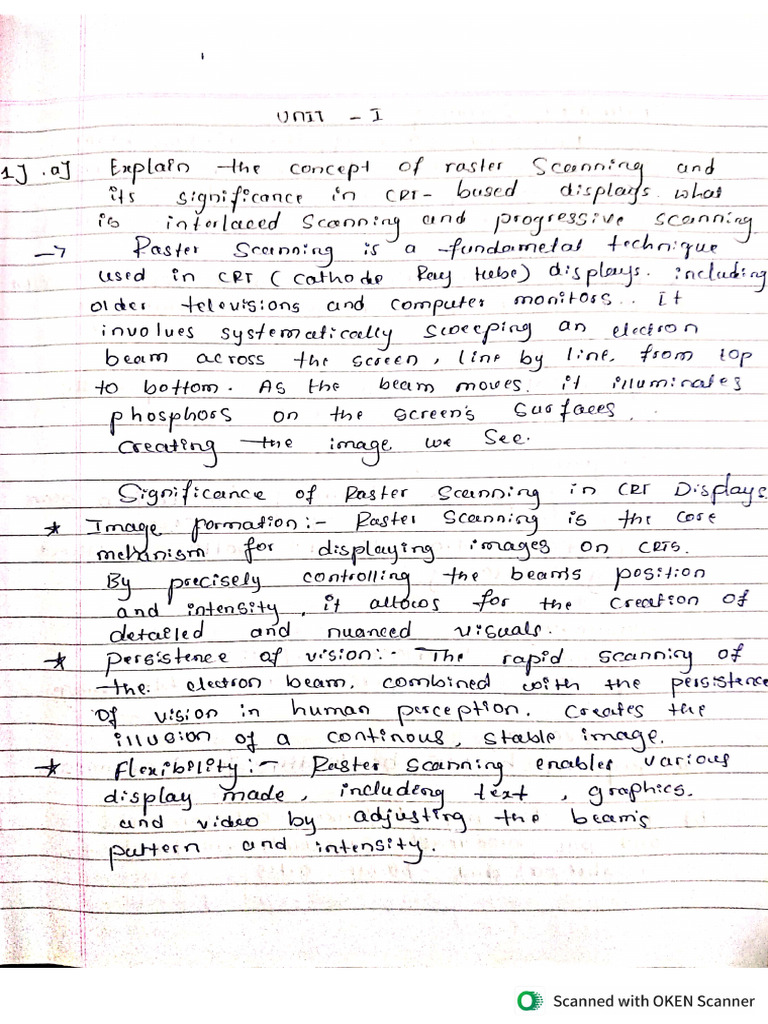 UNIT - I
1] .a] Explain the concept of raster Scanning and
its significance in CRT- based displays. what
is interlaced Scanning and progressive scanning
→ Raster Scanning is a fundametal technique
used in CRT (Cathode Ray tube) displays. including
older televisions and computer monitors.. It
involves systematically sweeping an electron
beam across the screen, line by line, from top
to bottom. As the beam moves. it illuminates
phosphors on the screen's surfaces.
creating the image we see.
Significance of Raster Scanning in CRT Displays
* Image formation:- Raster Scanning is the core
mehanism for displaying images on CRTS.
By precisely controlling the beam's position
and intensity, it allows for the creation of
detailed and nuanced visuals.
* persistence of vision:- The rapid scanning of
the. electron beam. combined with the persistence
of vision in human perception. creates the
illusion of a continous, stable image.
* Flexibility:- Raster scanning enables various
display made, including text, graphics.
and video by adjusting the beam's
pattern and intensity.
Scanned with OKEN Scanner